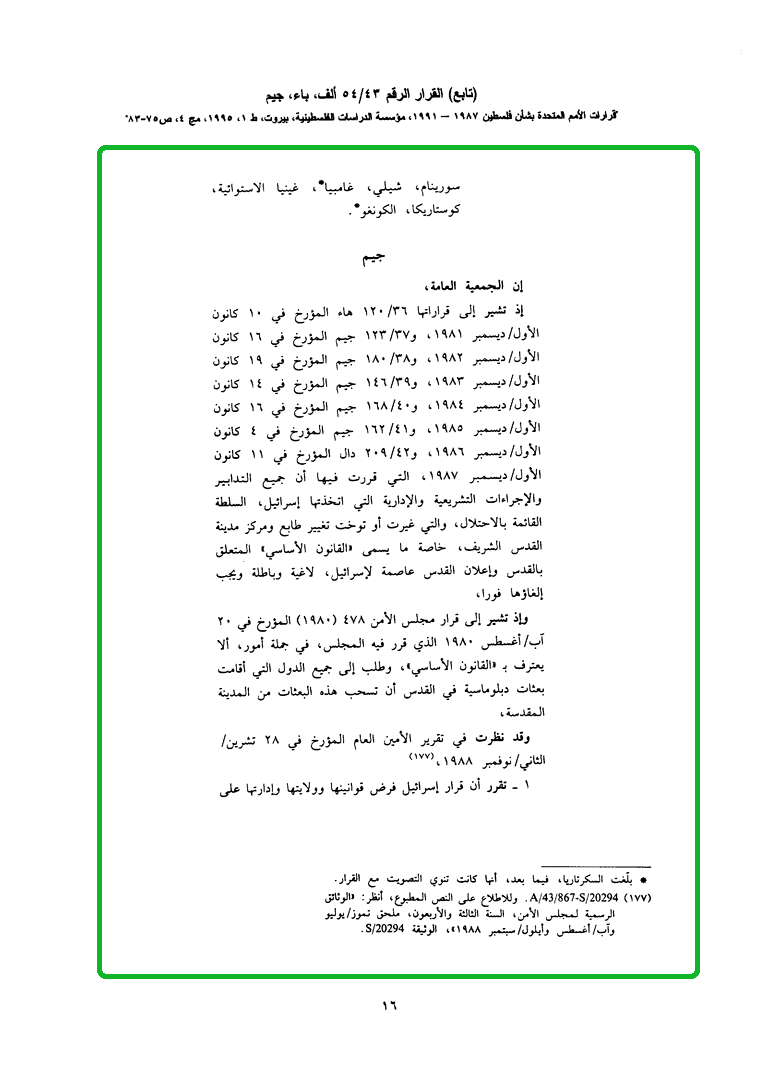 (تابع) القرار الرقم ٥٤/٤٣ ألف، باء، جيم
"قرارات الأمم المتحدة بشأن فلسطين ١٩٨٧ – ١٩٩١، مؤسسة الدراسات الفلسطينية، بيروت، ط ١، ١٩٩٥، مج ٤، ص٧٥-٨٣"
سورينام، شيلي، غامبيا*، غينيا الاستوائية،
كوستاريكا، الكونغو*.
جيم
إن الجمعية العامة،
إذ تشير إلى قراراتها ١٢٠/٣٦ هاء المؤرخ في ١٠ كانون
الأول/ديسمبر ١٩٨١، و١٢٣/٣٧ جيم المؤرخ في ١٦ كانون
الأول/ديسمبر ١٩٨٢، و١٨٠/٣٨ جيم المؤرخ في ١٩ كانون
الأول/ديسمبر ١٩٨٣، و١٤٦/٣٩ جيم المؤرخ في ١٤ كانون
الأول/ديسمبر ١٩٨٤، و١٦٨/٤٠ جيم المؤرخ في ١٦ كانون
الأول/ديسمبر ١٩٨٥، و١٦٢/٤١ جيم المؤرخ في ٤ كانون
الأول/ديسمبر ١٩٨٦، و٢٠٩/٤٢ دال المؤرخ في ١١ كانون
الأول/ديسمبر ١٩٨٧، التي قررت فيها أن جميع التدابير
والإجراءات التشريعية والإدارية التي اتخذتها إسرائيل، السلطة
القائمة بالاحتلال، والتي غيرت أو توخت تغيير طابع ومركز مدينة
القدس الشريف، خاصة ما يسمى «القانون الأساسي» المتعلق
بالقدس وإعلان القدس عاصمة لإسرائيل، لاغية وباطلة ويجب
إلغاؤها فورا،
وإذ تشير إلى قرار مجلس الأمن ٤٧٨ (١٩٨٠) المؤرخ في ٢٠
آب/أغسطس ١٩٨٠ الذي قرر فيه المجلس، في جملة أمور، ألا
يعترف بـ «القانون الأساسي»، وطلب إلى جميع الدول التي أقامت
بعثات دبلوماسية في القدس أن تسحب هذه البعثات من المدينة
المقدسة،
وقد نظرت في تقرير الأمين العام المؤرخ في ٢٨ تشرين/
الثاني/نوفمبر ١٩٨٨،(١٧٧)
١ ـ تقرر أن قرار إسرائيل فرض قوانينها وولايتها وإدارتها على
* بلّغت السكرتاريا، فيما بعد، أنها كانت تنوي التصويت مع القرار.
(١٧٧) A/43/867-S/20294. وللاطلاع على النص المطبوع، أنظر: «الوثائق
الرسمية لمجلس الأمن، السنة الثالثة والأربعون، ملحق تموز/يوليو
وآب/أغسطس وأيلول/سبتمبر ١٩٨٨»، الوثيقة S/20294.
١٦